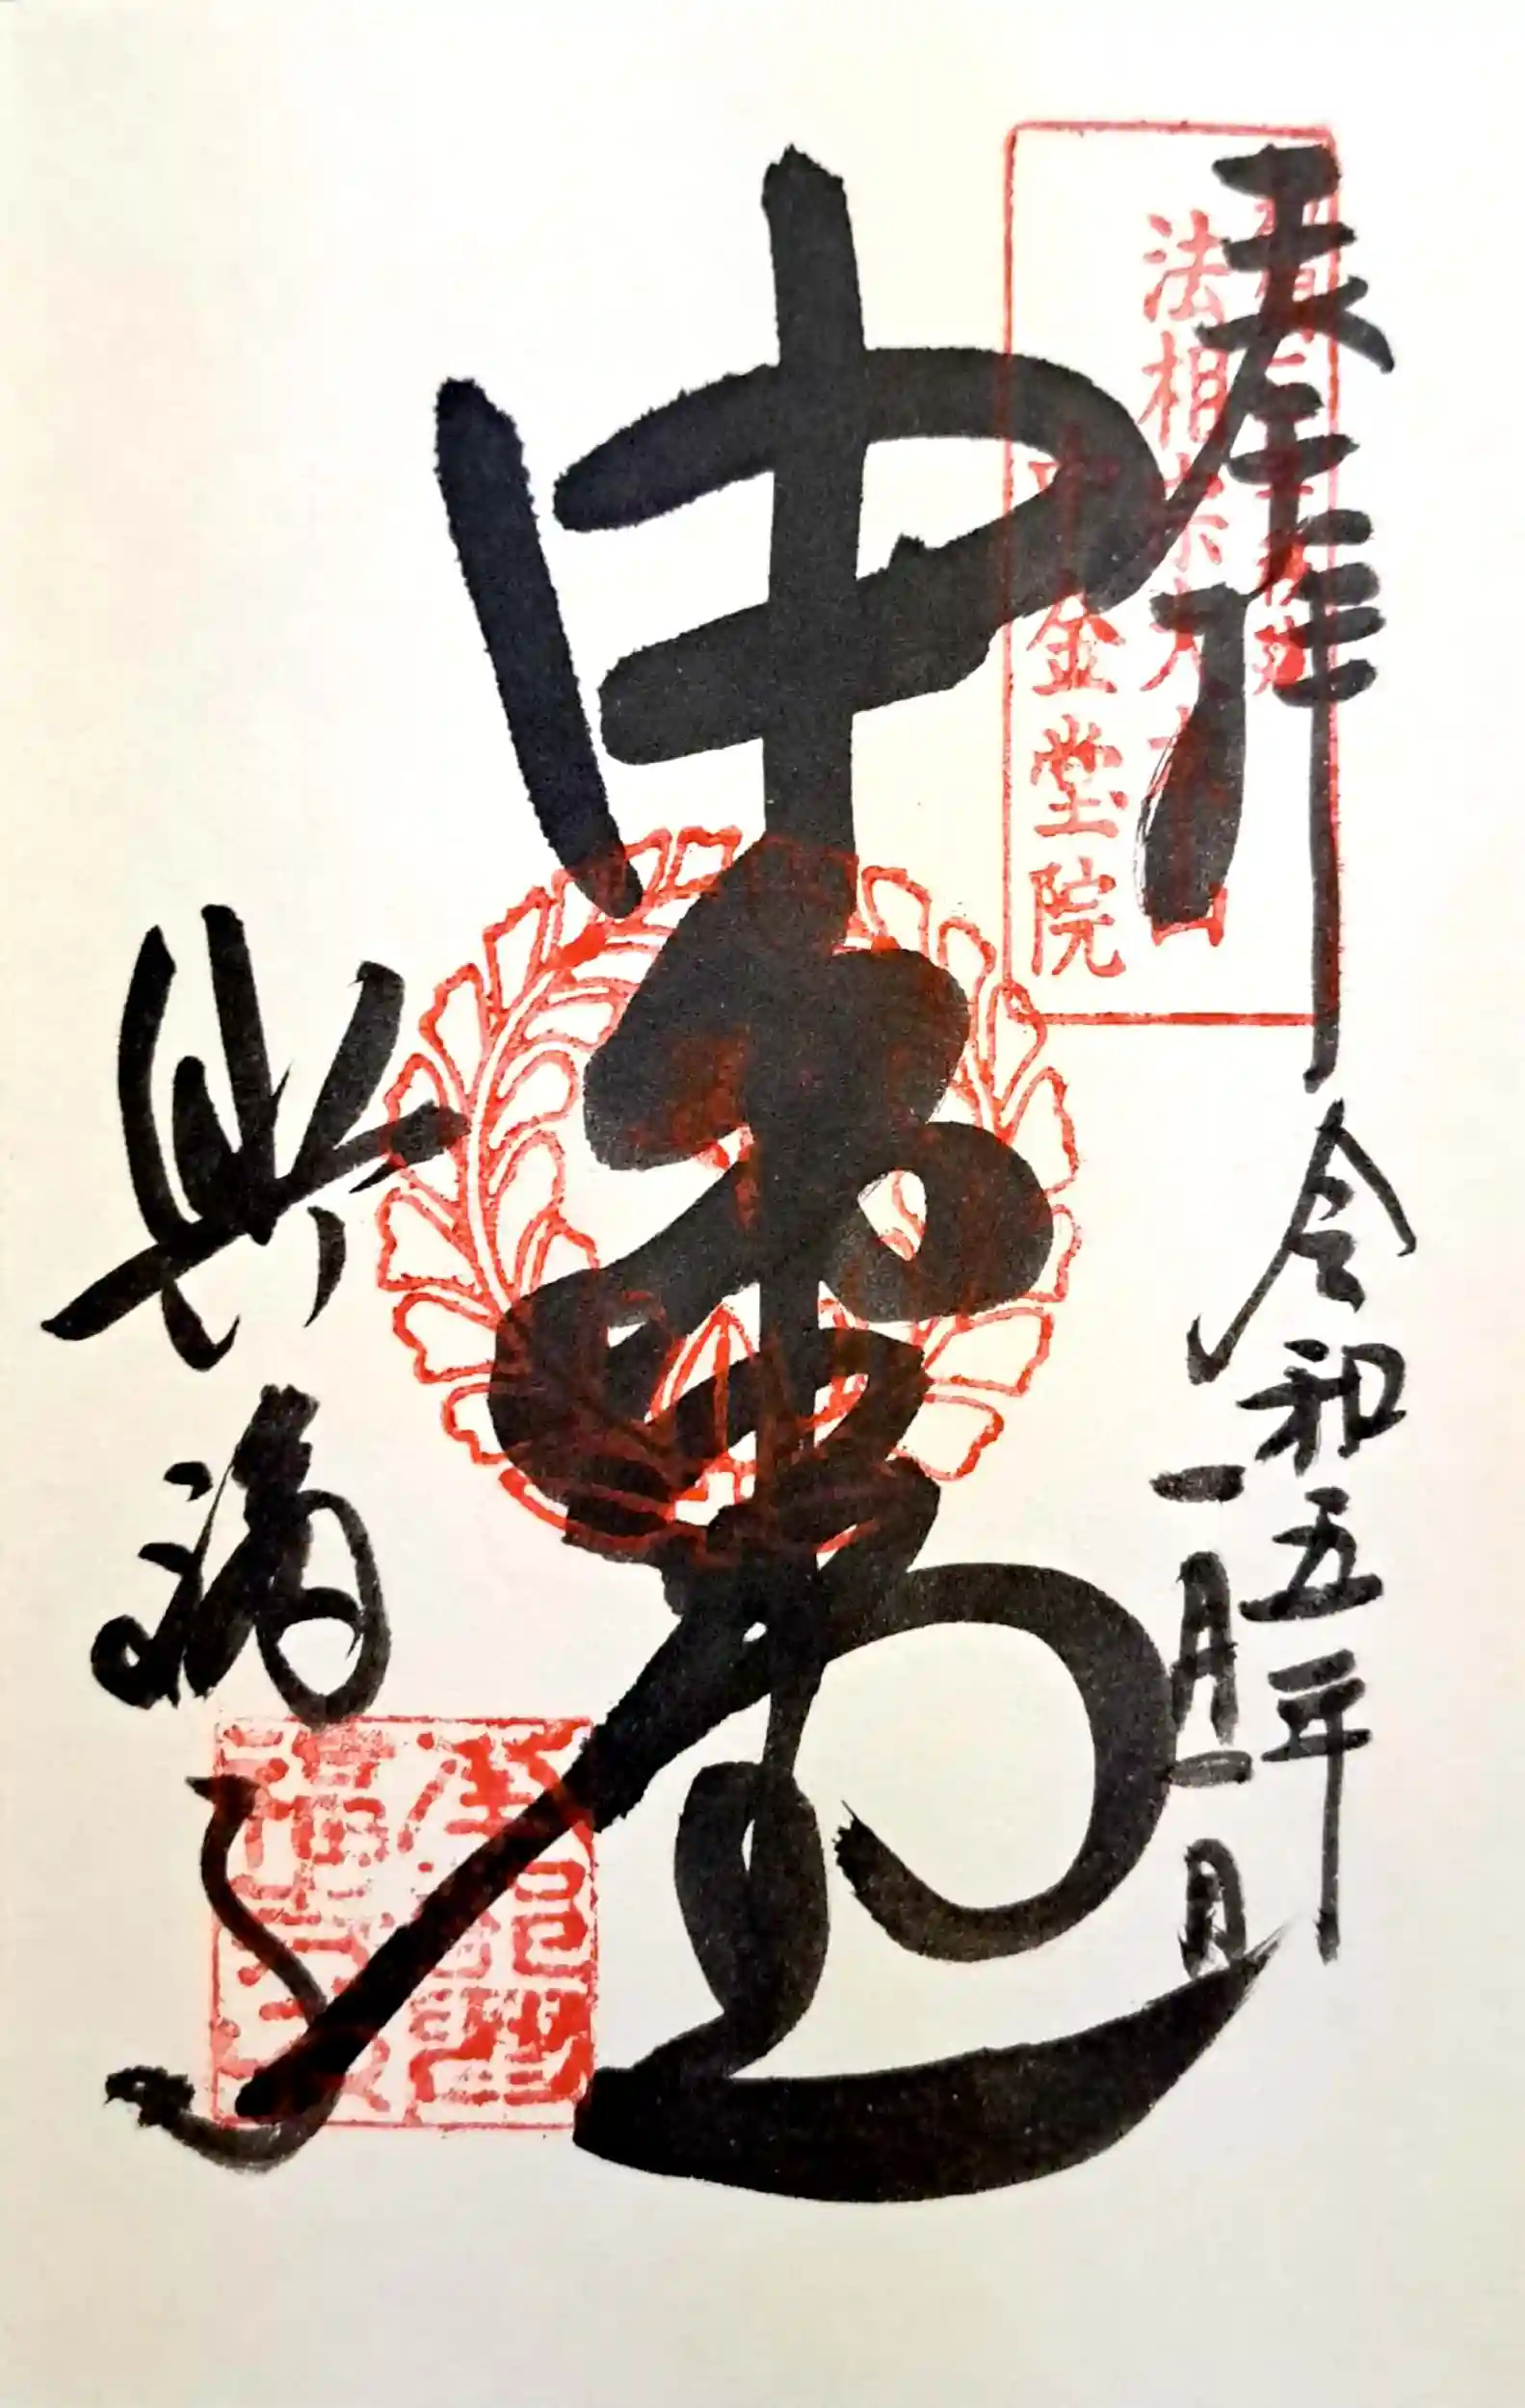 奉拝
法相宗大本山
中金堂院
令和五年
一月一日
中金堂
興福寺